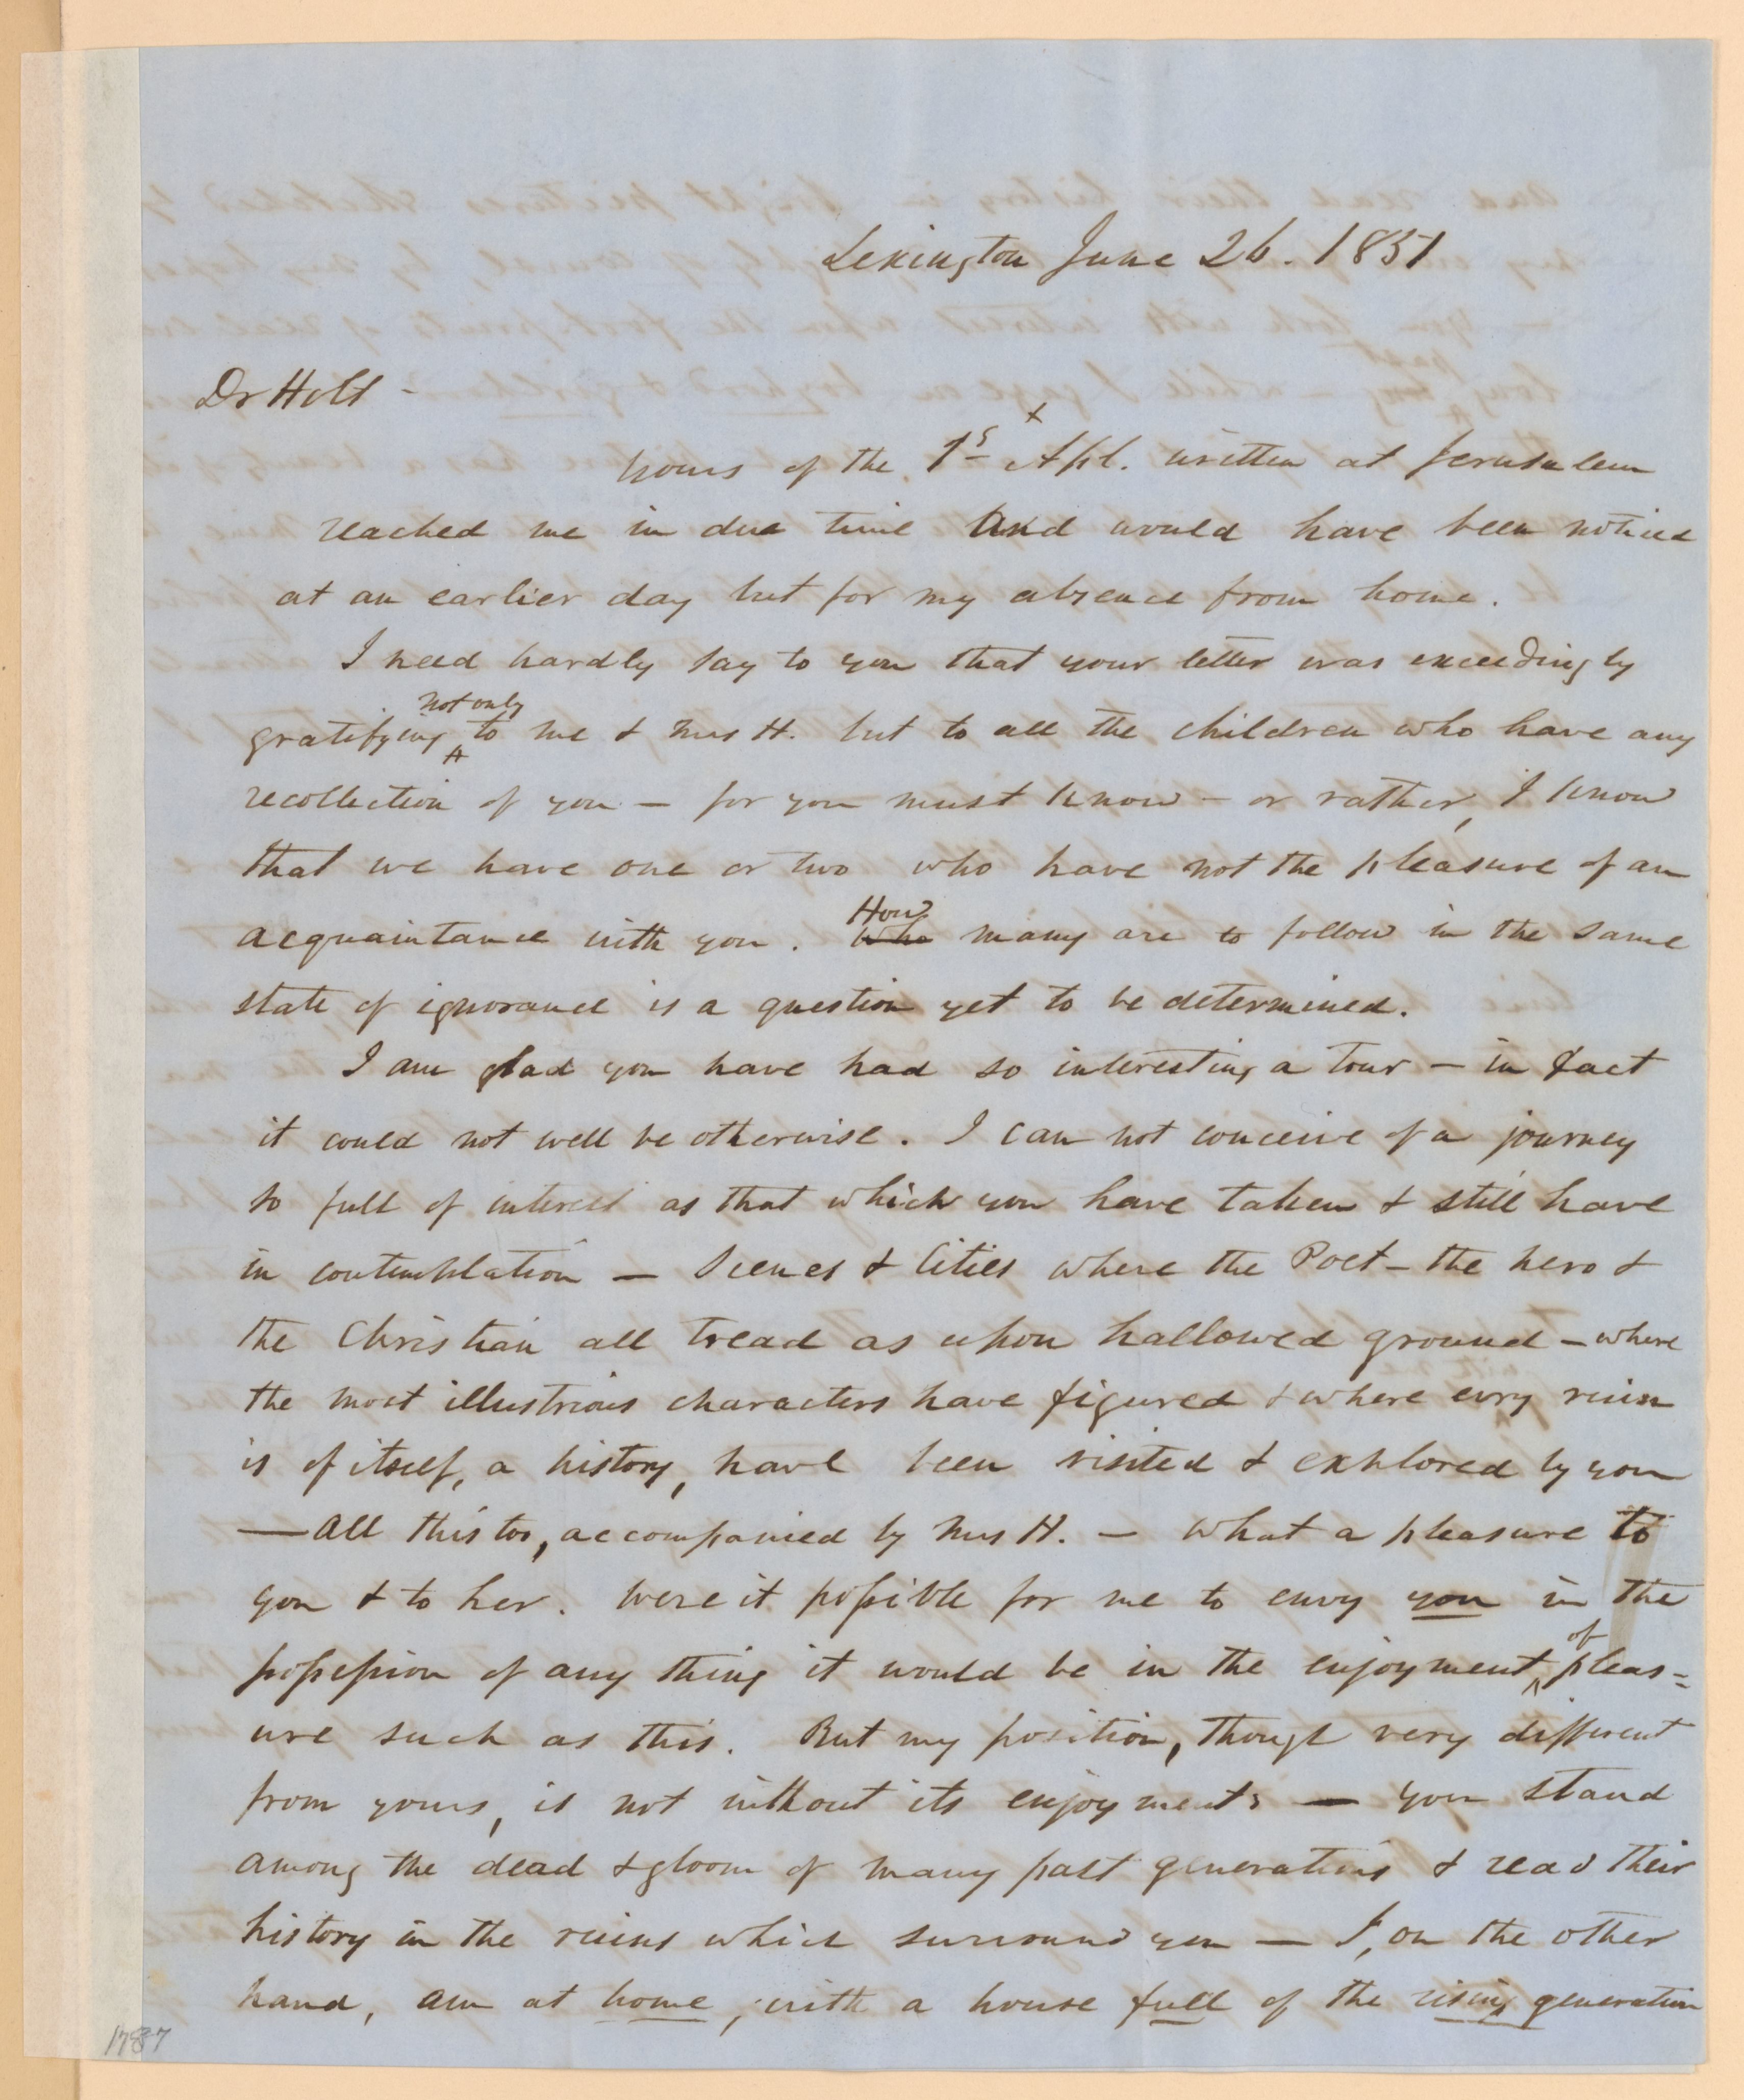 Lexington June 26. 1851
Dr Holt -
yours of the 1st Apl. written at Jerusalem
reached me in due time and would have been noticed
at an earlier day but for my absence from home.
I need hardly say to you that your letter was exceedingly
not only
gratifying to me & Mrs H. but to all the children who have any
recollection of you - for you must know - or rather, I know
that we have one or two who have not the pleasure of an
How
acquaintance with you. Who many are to follow in the same
state of ignorance is a question yet to be determined.
I am glad you have had so interesting a tour - in fact
it could not well be otherwise. I can not conceive of a journey
so full of interest as that which you have taken & still have
in contemplation - Scenes & Cities where the Poet - the hero &
the Christian all tread as upon hallowed ground - where
the most illustrious characters have figured & where evry ruin
is of itself, a history, have been visited & explored by you
- all this too, accompanied by Mrs H. - what a pleasure to
you & to her. Were it possible for me to envy you in the
of
possession of any thing it would be in the enjoyment pleas=
ure such as this. But my position, though very different
from yours, is not without its enjoyments - you stand
among the dead & gloom of many past generations & read their
history in the ruins which surround you - I, on the other
hand, am at home, with a house full of the rising generation
1787